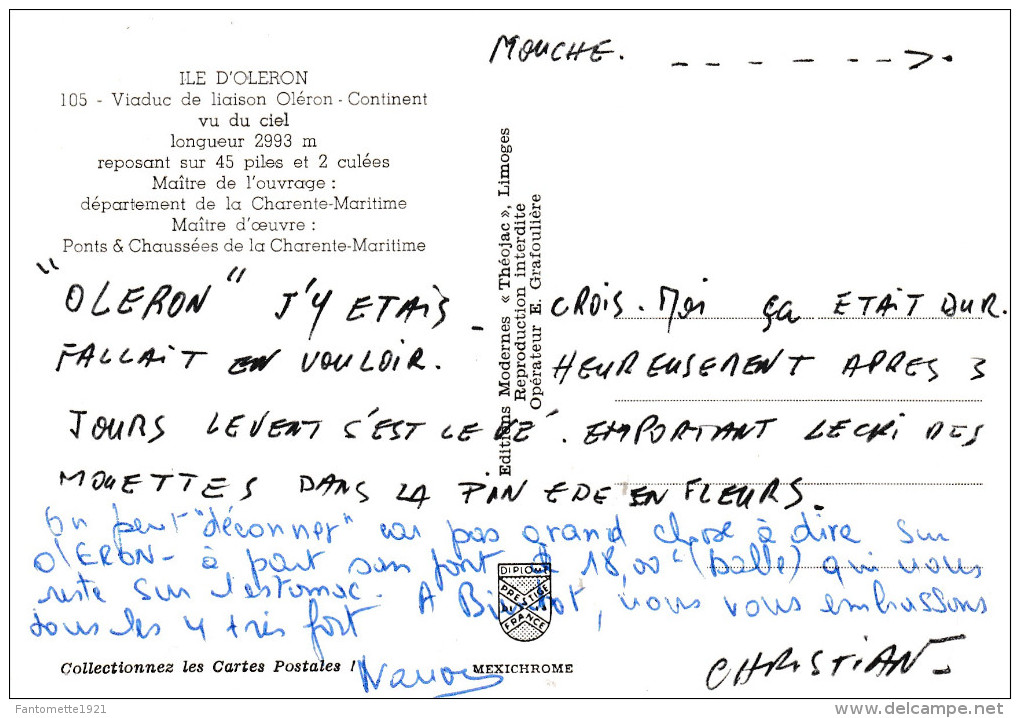 MOUCHE. _ _ _ _ _ _ >.
ILE D'OLERON
105 - Viaduc de liaison Oléron - Continent
vu du ciel
longueur 2993 m
reposant sur 45 piles et 2 culées
Maître de l'ouvrage :
département de la Charente-Maritime
Maître d'œuvre :
Ponts & Chaussées de la Charente-Maritime
Editions Modernes « Théojac », Limoges
Reproduction interdite
Opérateur E. Grafoulière
"OLERON" J'Y ETAIS - CROIS. Moi ça ETAIT DUR.
FALLAIT EN VOULOIR. HEUREUSEMENT APRES 3
JOURS LEVENT S'EST LE . EMPORTANT LECRI DES
MOUETTES DANS LA PIN EDE EN FLEURS.
On peut "déconner" car pas grand chose à dire sur
OLERON - à part son fort à 18,00 F (balle) qui nous
reste sur l'estomac. A , nous vous embrassons
tous les 4 très fort
DIPLOME
PRESTIGE
FRANCE
Collectionnez les Cartes Postales !
MEXICHROME
CHRISTIAN -
Fantomette1921
www.delcampe.net